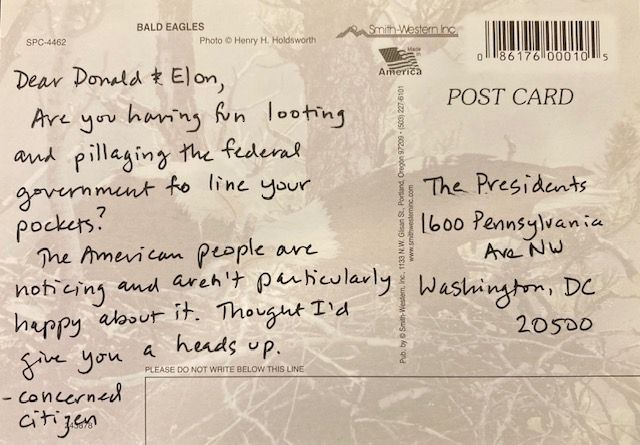 BALD EAGLES
SPC-4462
Photo © Henry H. Holdsworth
Smith-Western Inc.
Made in
America
0 86176 00010 5
POST CARD
Dear Donald & Elon,
Are you having fun looting
and pillaging the federal
government to line your
pockets?
The American people are
noticing and aren't particularly
happy about it. Thought I'd
give you a heads up.
- concerned
citizen
Pub. by © Smith-Western, Inc. 1133 N.W. Glisan St., Portland, Oregon 97209 • (503) 227-6101
www.smithwesterninc.com
The Presidents
1600 Pennsylvania
Ave NW
Washington, DC
20500
PLEASE DO NOT WRITE BELOW THIS LINE